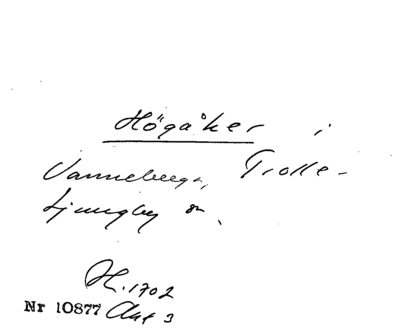 Högåker i
Vanneberga, Trolle-
Ljungby sn.
H. 1702
Nr 10877 Akt 3